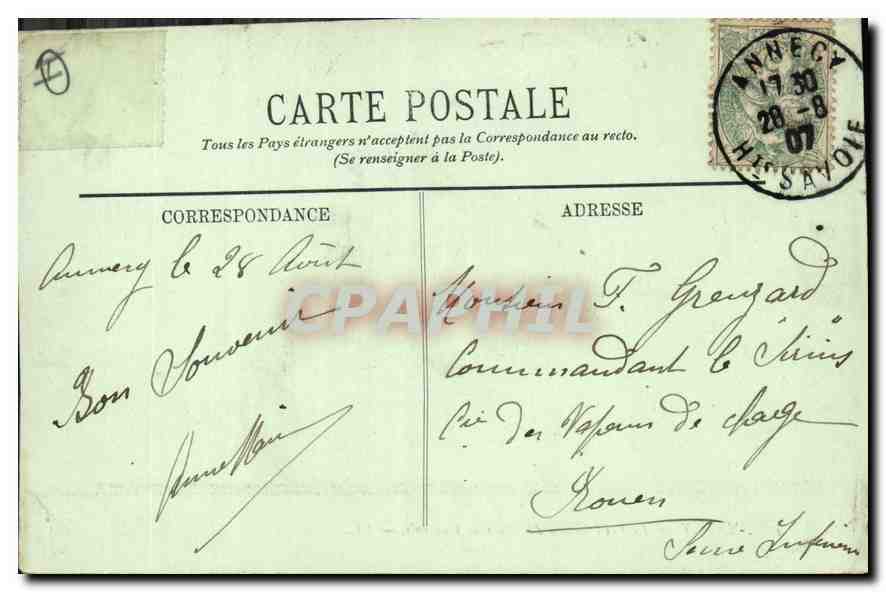 CARTE POSTALE
Tous les Pays étrangers n'acceptent pas la Correspondance au recto.
(Se renseigner à la Poste).
ANNECY
17 30
28 -8
07
Hte SAVOIE
CORRESPONDANCE
Annecy le 28 Août
Bon Souvenir
ADRESSE
Monsieur F. Grenzard
Commandant le "Sirius"
Cie des Vapeurs de charge
Rouen
Seine Inférieure
CPAPHIL